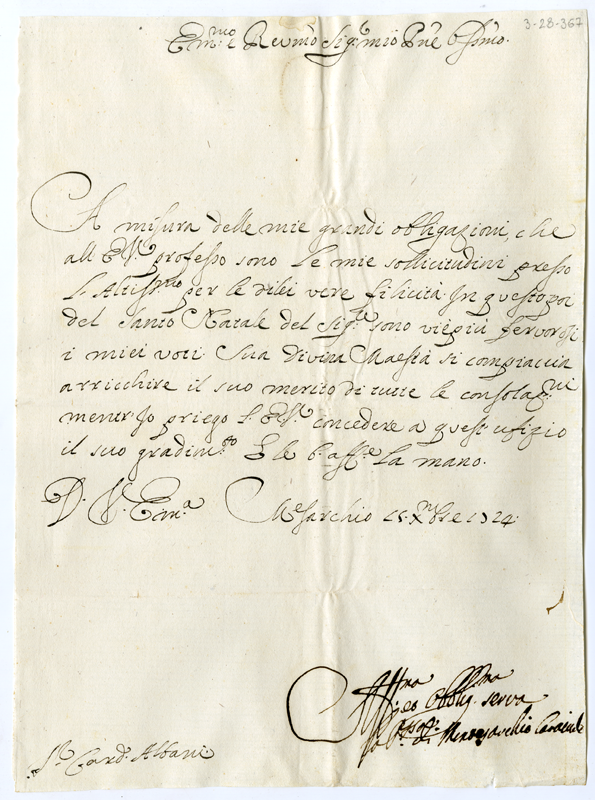 3-28-367
Em.mo e Reumo Sig.r mio Pne Ossmo.
A misura delle mie grandi obligazioni, che
all'E.V. professo sono le mie sollicitudini presso
l'Altis.mo per le dilei vere filicità. In questo poi
del Santo Natale del Sig.re sono viepiù fervorosi
i miei voti. Sua Divina Maestà si compiaccia
arricchire il suo merito di tutte le consolaz.ni
mentr'Io priego l'E.V. concedere a quest'ufizio
il suo gradim.to E le b. aff.e la mano.
D. V. Em.a Mo͂sarchio 15 Xmbre 1724.
Obblig. serva
di Montesarchio
S.r Card. Albani